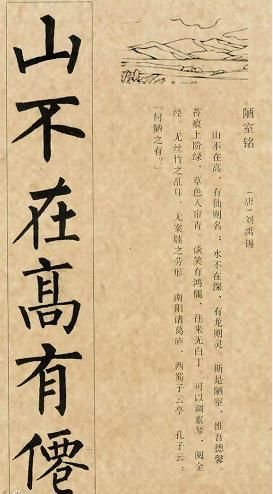 陋室铭
（唐）刘禹锡
山不在高，有仙则名；水不在深，有龙则灵。斯是陋室，惟吾德馨。
苔痕上阶绿，草色入帘青。谈笑有鸿儒，往来无白丁。可以调素琴，阅金
经。无丝竹之乱耳，无案牍之劳形。南阳诸葛庐，西蜀子云亭。孔子云：
「何陋之有？」
山不在高有僊